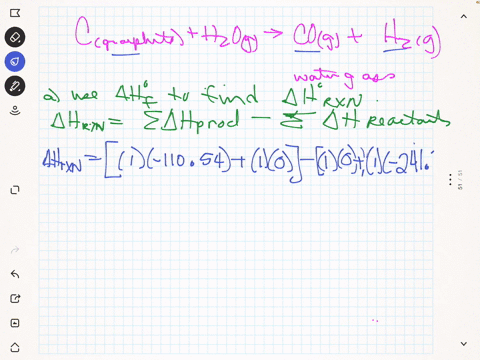 C(graphite) + H₂O(g) → CO(g) + H₂(g)
water gas
a) use ΔH°f to find ΔH°RXN.
ΔHRXN = ΣΔHprod − Σ ΔH reactants
ΔHRXN = [(1)(-110.54) + (1)(0)] − [(1)(0) + (1)(-241.